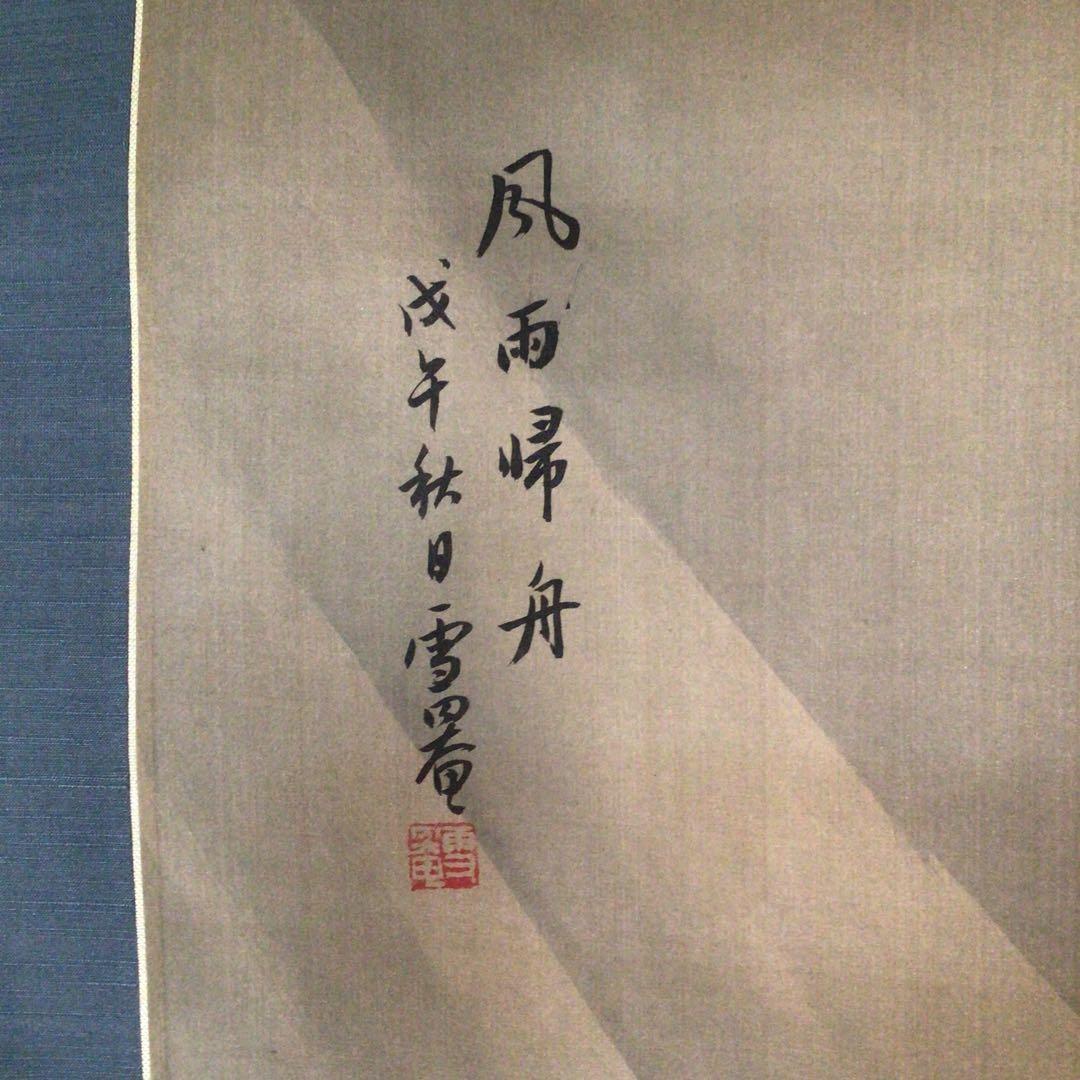 風雨帰舟
戊午秋日雪罨